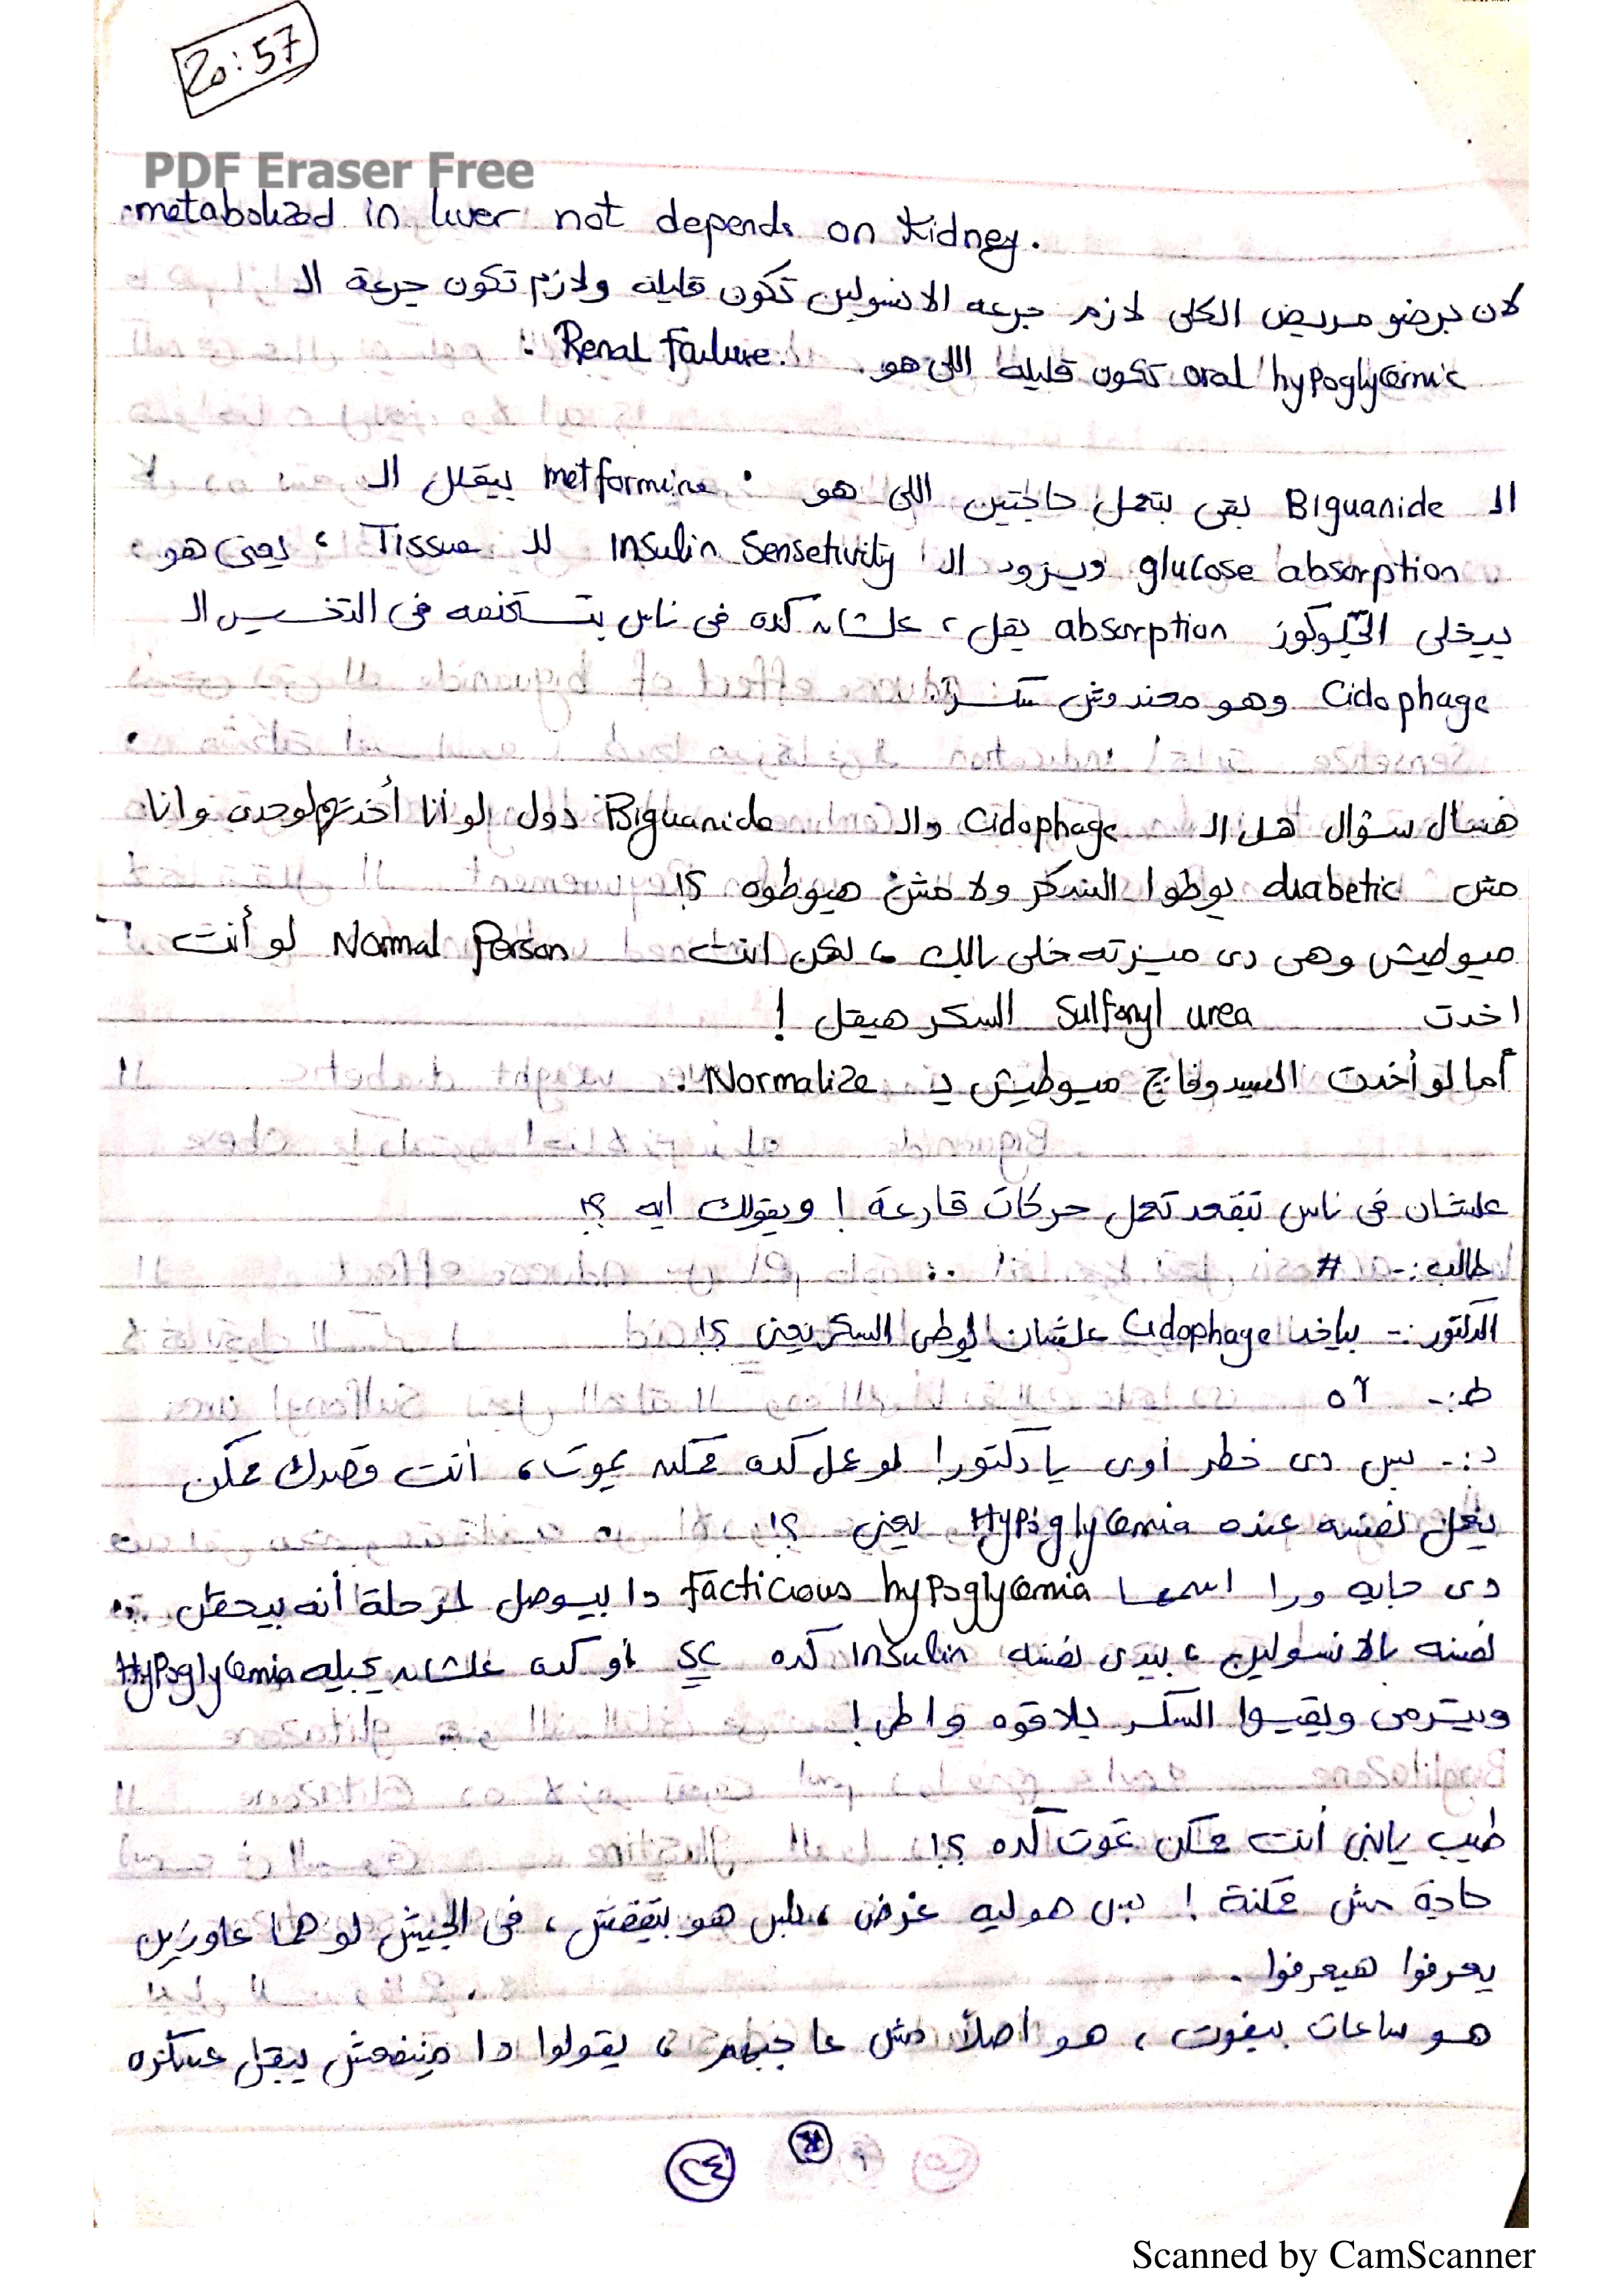 20:57
PDF Eraser Free
metabolized in liver not depends on Kidney.
لان برضو مريض الكلى لازم جرعه الانسولين تكون قليله ولازم تكون جرعة الـ
oral hypoglycemic تكون قليله اللى هو Renal failure.
الـ Biguanide بقى بتعمل حاجتين اللى هو metformine بيقلل الـ
glucose absorption ويزود الـ Insulin Sensetivity للـ Tissue ، يعنى هو
بيخلى الجلوكوز absorption يقل ، علشان كده فى ناس بتستخدمه فى التخسيس الـ
Cidophage وهو معندوش سكر
هنسأل سؤال هل الـ Cidophage والـ Biguanide دول لو أنا أخدتهم لوحدى وانا
مش diabetic يوطوا السكر ولا مش هيوطوه ؟!
ميوطيش وهى دى ميزته خلى بالك ، لكن انت Normal Person لو أنت
اخدت Sulfonyl urea السكر هيقل !
أما لو أخدت السيدوفاج ميوطيش بـ Normalize .
علشان فى ناس تتقعد تعمل حركات قارعة ! ويقولك ايه ؟!
طالب :- #
الدكتور :- بياخد Cidophage علشان يوطى السكر يعنى ؟!
ط :- آه
د :- بس دى خطر أوى يا دكتور! لو عمل كده ممكن يموت ، أنت قصدك ممكن
يعمل نفسه عنده Hypoglycemia يعنى ؟!
دى حايه ورا اسمها Facticious hypoglycemia دا بيوصل لمرحلة أنه بيحقن
نفسه بالانسولين ، بيدى نفسه Insulin كده SC أو كده علشان يجيله Hypoglycemia
وبيترمى ويقيسوا السكر يلاقوه واطى !
طيب يابنى أنت ممكن تموت كده ؟!
حاجة مش ممكنة ! بس هو ليه غرض ، بس هو بيتقفش ، فى الجيش لو هما عاوزين
يعرفوا هيعرفوا .
هو ساعات بيفوت ، هو اصلاً مش عاجبهم ، يقولوا دا مينفعش يبقى عسكرى
٢٤
Scanned by CamScanner